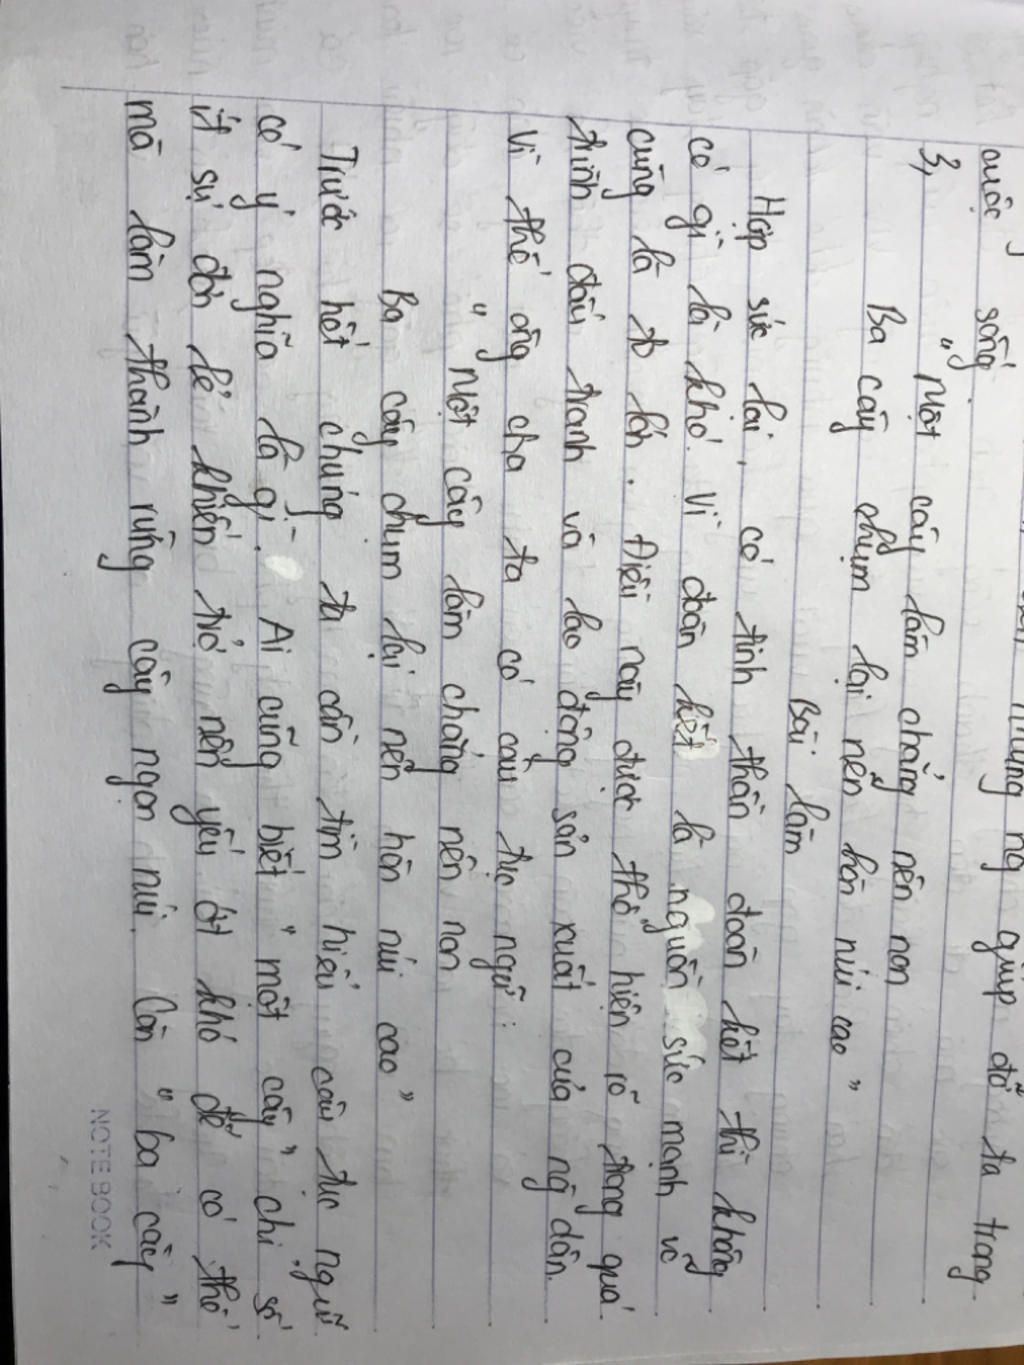 những ng giúp đỡ ta trong
cuộc sống.
3, " Một cây làm chẳng nên non
Ba cây chụm lại nên hòn núi cao "
Bài làm
Hợp sức lại, có tinh thần đoàn kết thì không
có gì là khó. Vì đoàn kết là nguồn sức mạnh vô
cùng là to lớn. Điều này được thể hiện rõ trong quá
trình đấu tranh và lao động sản xuất của ng dân.
Vì thế ông cha ta có câu tục ngữ:
" Một cây làm chẳng nên non
Ba cây chụm lại nên hòn núi cao "
Trước hết chúng ta cần tìm hiểu câu tục ngữ
có ý nghĩa là gì. Ai cũng biết " một cây " chỉ số
ít sự đơn lẻ khiến trở nên yếu ớt khó để có thể
mà làm thành rừng cây ngọn núi. Còn " ba cây "
NOTE BOOK